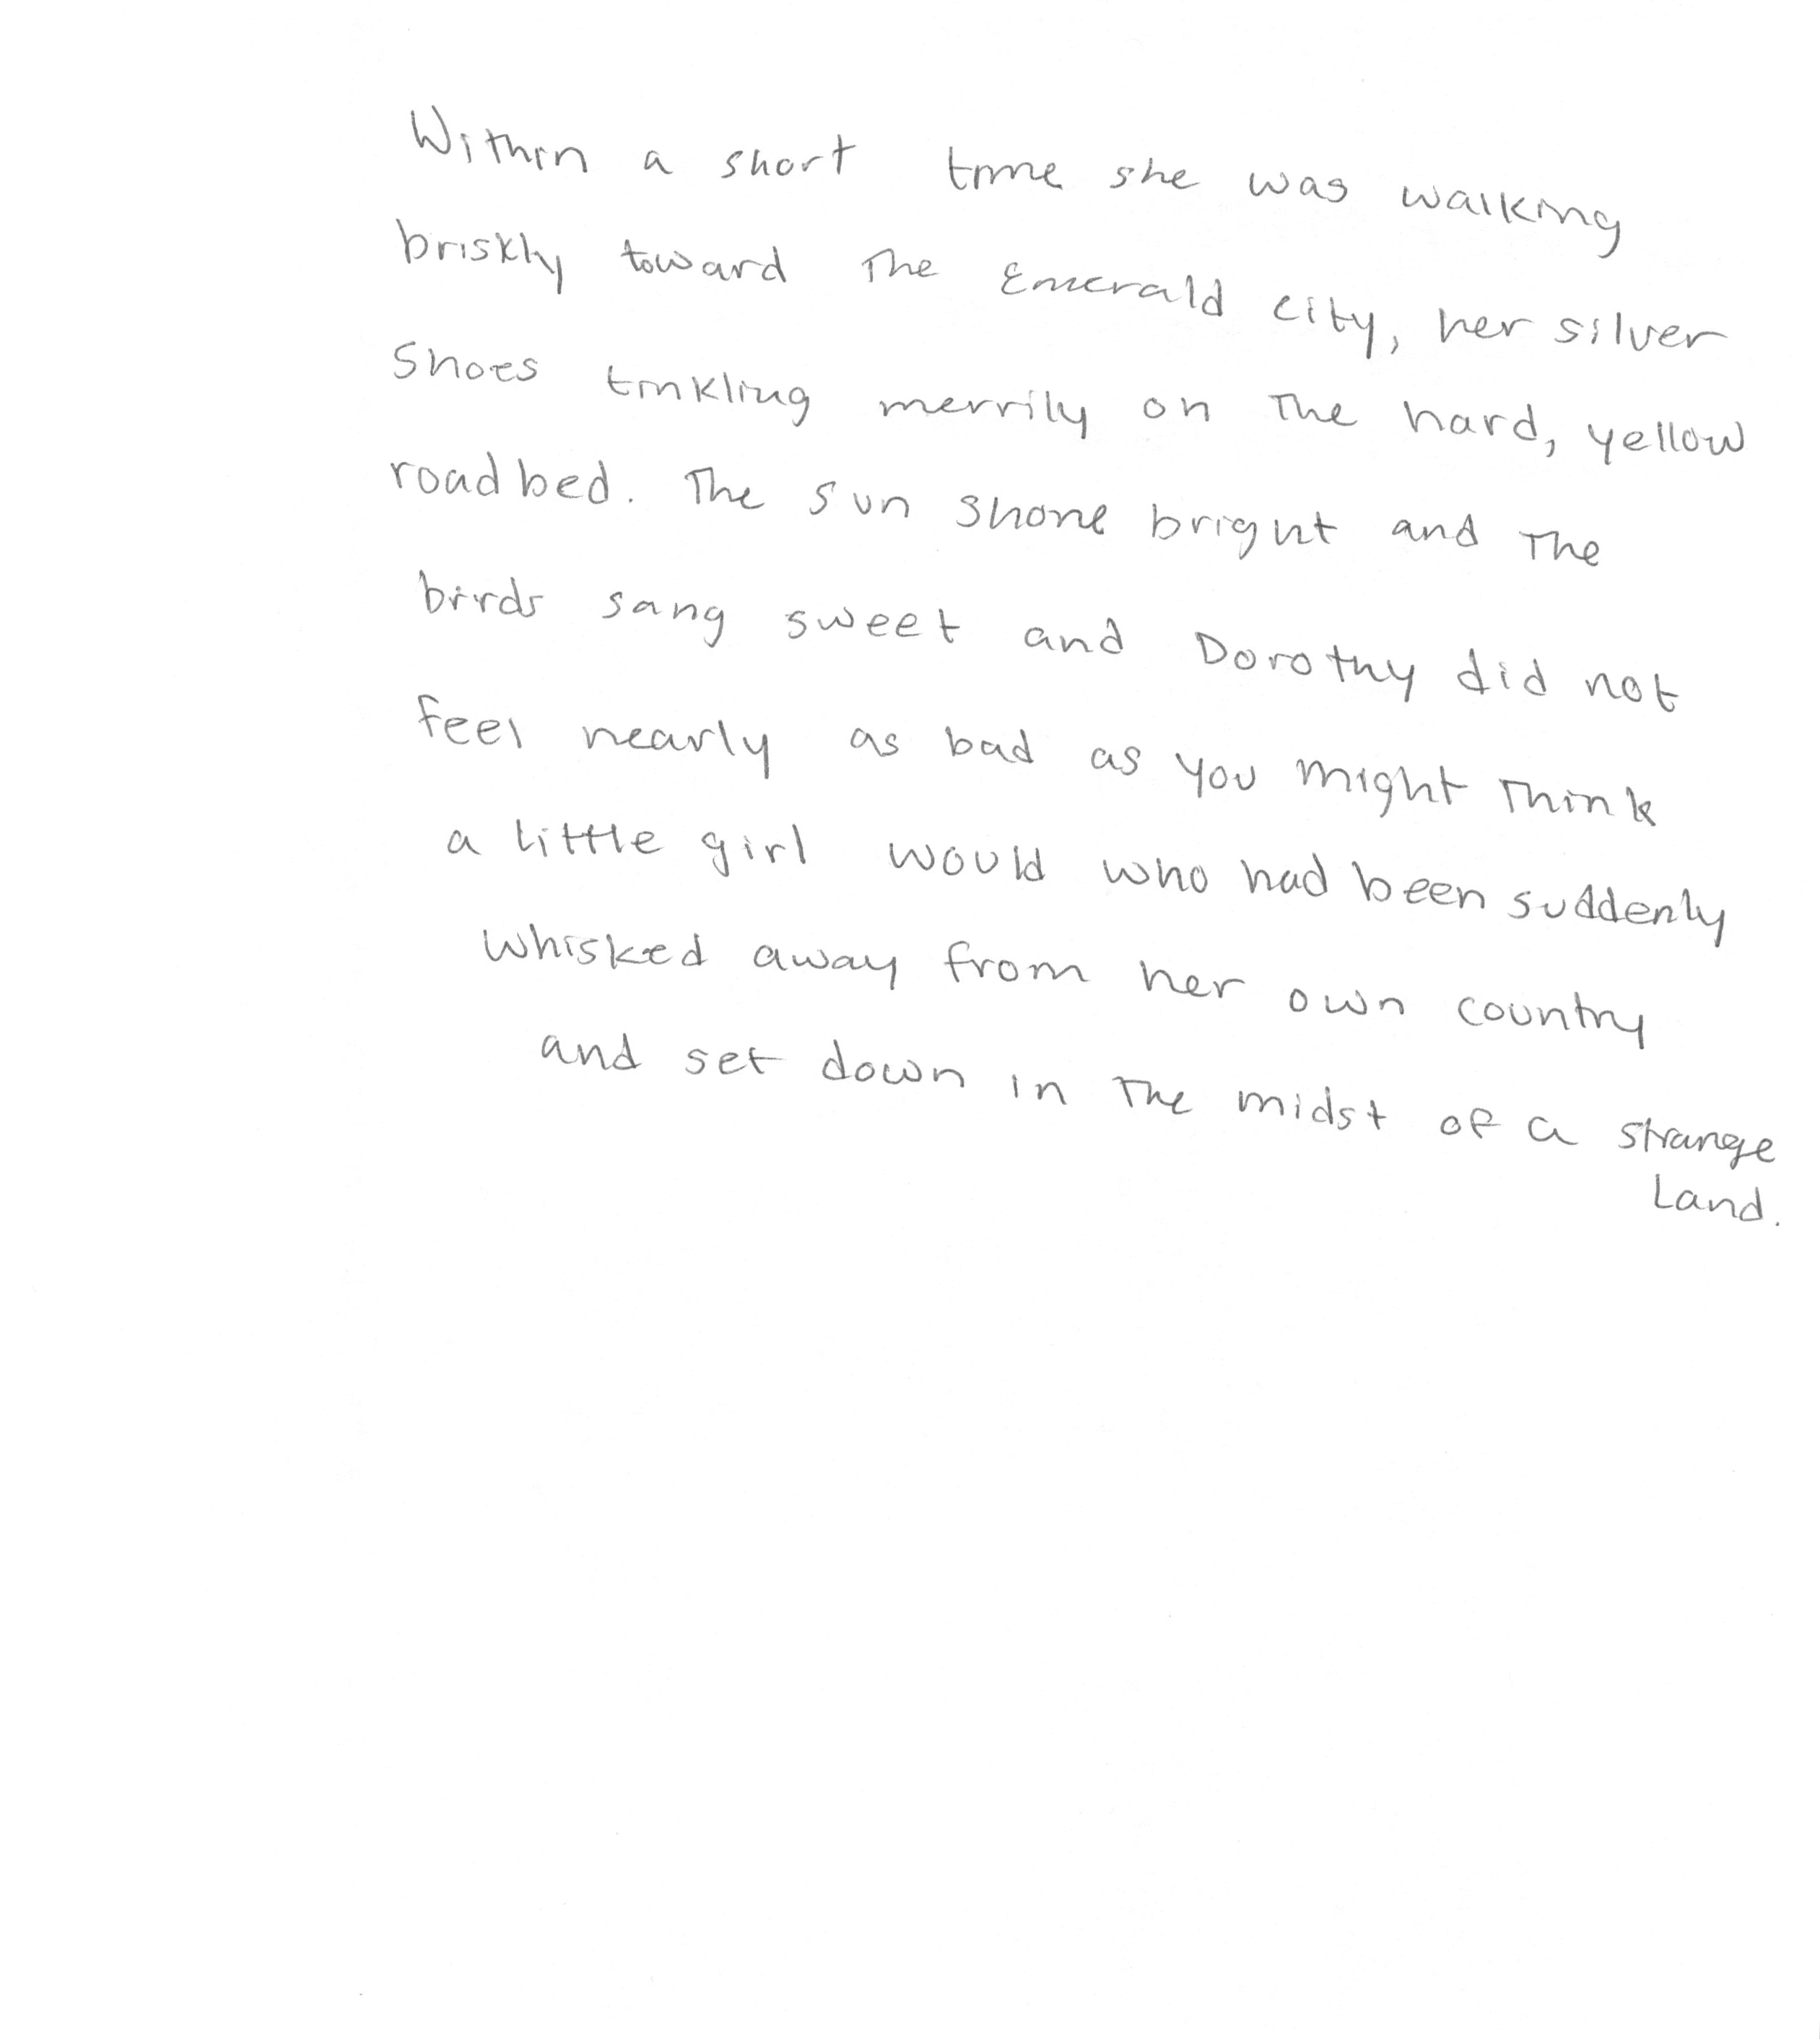 Within a short time she was walking
briskly toward the Emerald city, her silver
shoes tinkling merrily on the hard, yellow
roadbed. The sun shone bright and the
birds sang sweet and Dorothy did not
feel nearly as bad as you might think
a little girl would who had been suddenly
whisked away from her own country
and set down in the midst of a strange
Land.